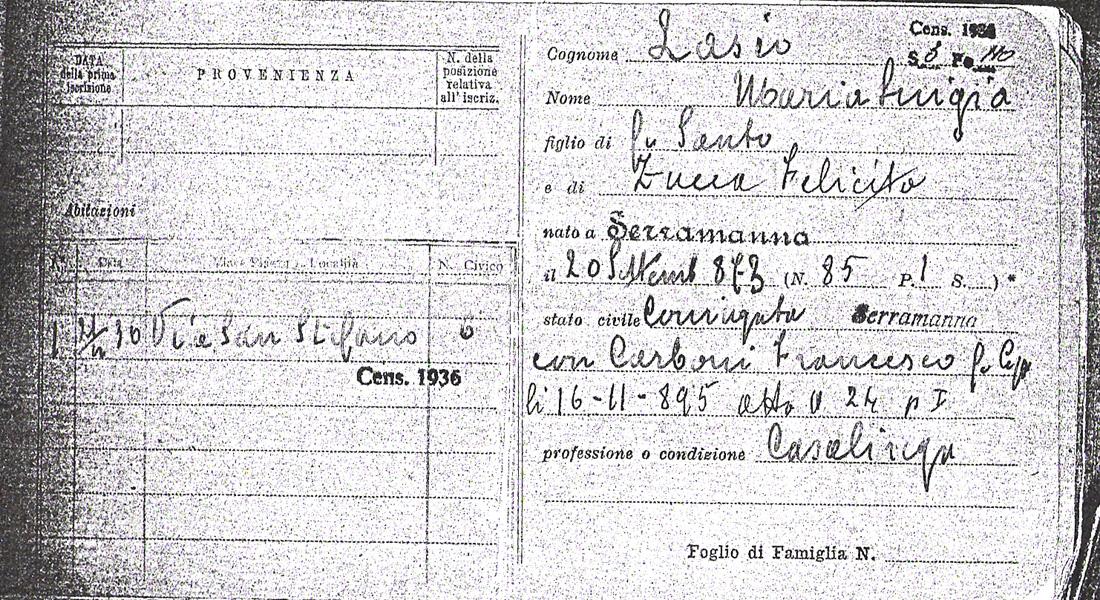 DATA della prima iscrizione
PROVENIENZA
N. della posizione relativa all' iscriz.
Abitazioni
N. Data Via o Piazza o Località N. Civico
1 30 Via San Stefano 6
Cens. 1936
Cens. 1936
S. 8 Fo. 110
Cognome Lasio
Nome Maria Luigia
figlio di fu Santo
e di Zucca Felicita
nato a Serramanna
il 20 Settemb 873 (N. 85 P. 1 S. ) *
stato civile Coniugata Serramanna
con Carboni Francesco fu
li 16-11-895 atto N 24 p I
professione o condizione Casalinga
Foglio di Famiglia N.